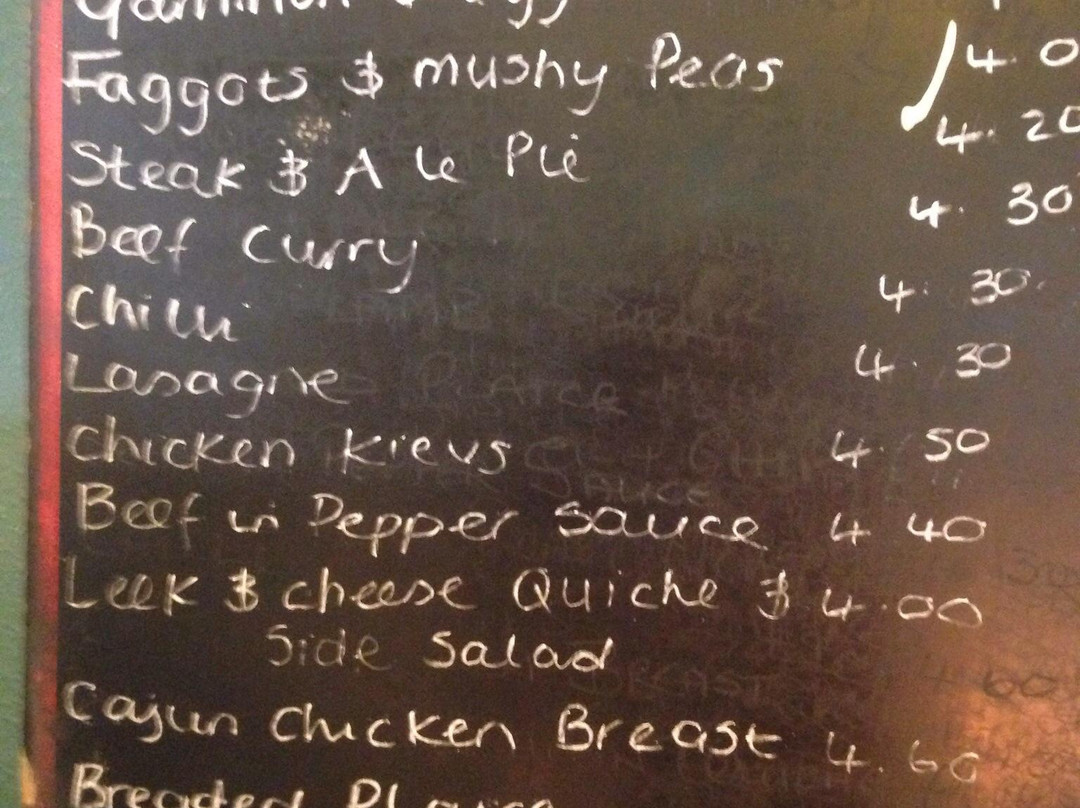 Faggots & mushy Peas 4.0
Steak & Ale Pie 4.20
Beef Curry 4.30
Chilli 4.30
Lasagne 4.30
Chicken Kievs 4.50
Beef in Pepper Sauce 4 40
Leek & cheese Quiche & 4.00
Side Salad
Cajun Chicken Breast 4.60
Breaded